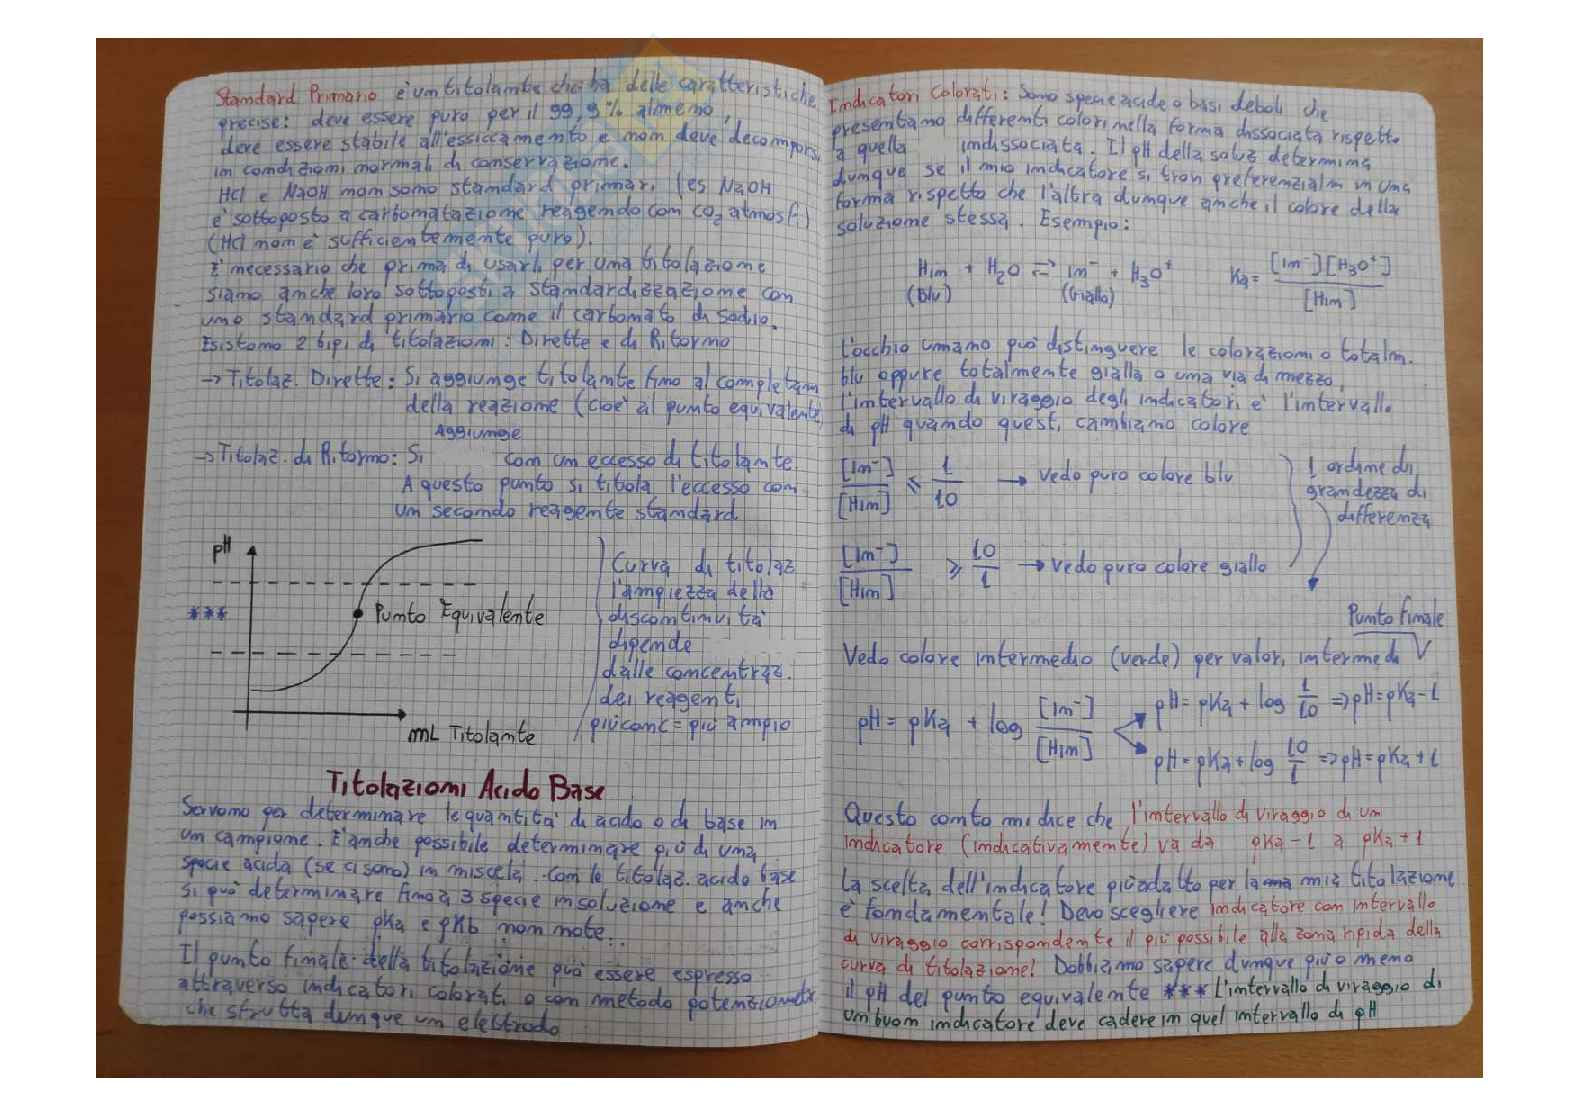 Standard Primario è un titolante che ha delle caratteristiche
precise: deve essere puro per il 99,9% almeno,
deve essere stabile all'essiccamento e non deve decomporsi
in condizioni normali di conservazione.
HCl e NaOH non sono standard primari (es NaOH
è sottoposto a carbonatazione reagendo con CO2 atmosf.)
(HCl non è sufficientemente puro).
È necessario che prima di usarli per una titolazione
siano anche loro sottoposti a standardizzazione con
uno standard primario come il carbonato di sodio.
Esistono 2 tipi di titolazioni: Dirette e di Ritorno
→ Titolaz. Dirette: Si aggiunge titolante fino al completam
della reazione (cioè al punto equivalente)
Aggiunge
→ Titolaz. di Ritorno: Si con un eccesso di titolante.
A questo punto si titola l'eccesso con
un secondo reagente standard
pH
***
Punto Equivalente
mL Titolante
Curva di titolaz
l'ampiezza della
discontinuità
dipende
dalle concentraz.
dei reagenti
più conc = più ampio
Titolazioni Acido Base
Servono per determinare le quantità di acido o di base in
un campione. È anche possibile determinare più di una
specie acida (se ci sono) in miscela. Con le titolaz. acido base
si può determinare fino a 3 specie in soluzione e anche
possiamo sapere pKa e pKb non note..
Il punto finale della titolazione può essere espresso
attraverso indicatori colorati o con metodo potenziometr
che sfrutta dunque un elettrodo
Indicatori Colorati: Sono specie acide o basi deboli che
presentano differenti colori nella forma dissociata rispetto
a quella indissociata. Il pH della soluz determina
dunque se il mio indicatore si trov preferenzialm in una
forma rispetto che l'altra dunque anche il colore della
soluzione stessa. Esempio:
Hin + H2O ⇌ in⁻ + H3O⁺ Ka = [in⁻][H3O⁺] / [Hin]
(Blu) (Giallo)
L'occhio umano può distinguere le colorazioni o totalm.
blu oppure totalmente gialla o una via di mezzo,
l'intervallo di viraggio degli indicatori è l'intervallo
di pH quando questi cambiano colore
[in⁻] / [Hin] ⩽ 1/10 → vedo puro colore blu
1 ordine di
grandezza di
differenza
[in⁻] / [Hin] ⩾ 10/1 → vedo puro colore giallo
Punto finale
Vedo colore intermedio (verde) per valori intermedi
pH = pKa + log [in⁻] / [Hin]
pH = pKa + log 1/10 => pH = pKa - 1
pH = pKa + log 10/1 => pH = pKa + 1
Questo conto mi dice che l'intervallo di viraggio di un
indicatore (indicativamente) va da pKa - 1 a pKa + 1
La scelta dell'indicatore più adatto per la mia titolazione
è fondamentale! Devo scegliere indicatore con intervallo
di viraggio corrispondente il più possibile alla zona ripida della
curva di titolazione! Dobbiamo sapere dunque più o meno
il pH del punto equivalente *** l'intervallo di viraggio di
un buon indicatore deve cadere in quel intervallo di pH